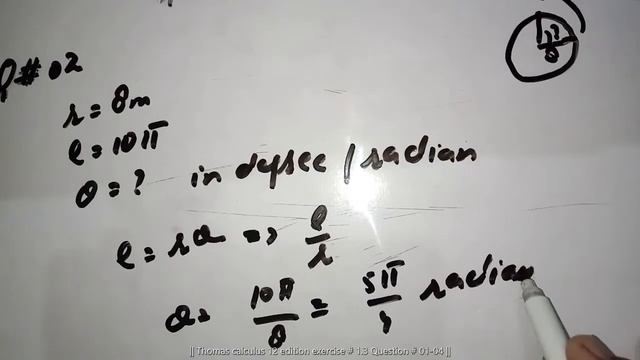 Q # 02
r = 8m
l = 10π
θ = ? in degree / radian
l = rθ => l/r
θ = 10π/8 = 5π/4 radian
|| Thomas calculus 12 edition exercise # 1.3 Question # 01-04 ||